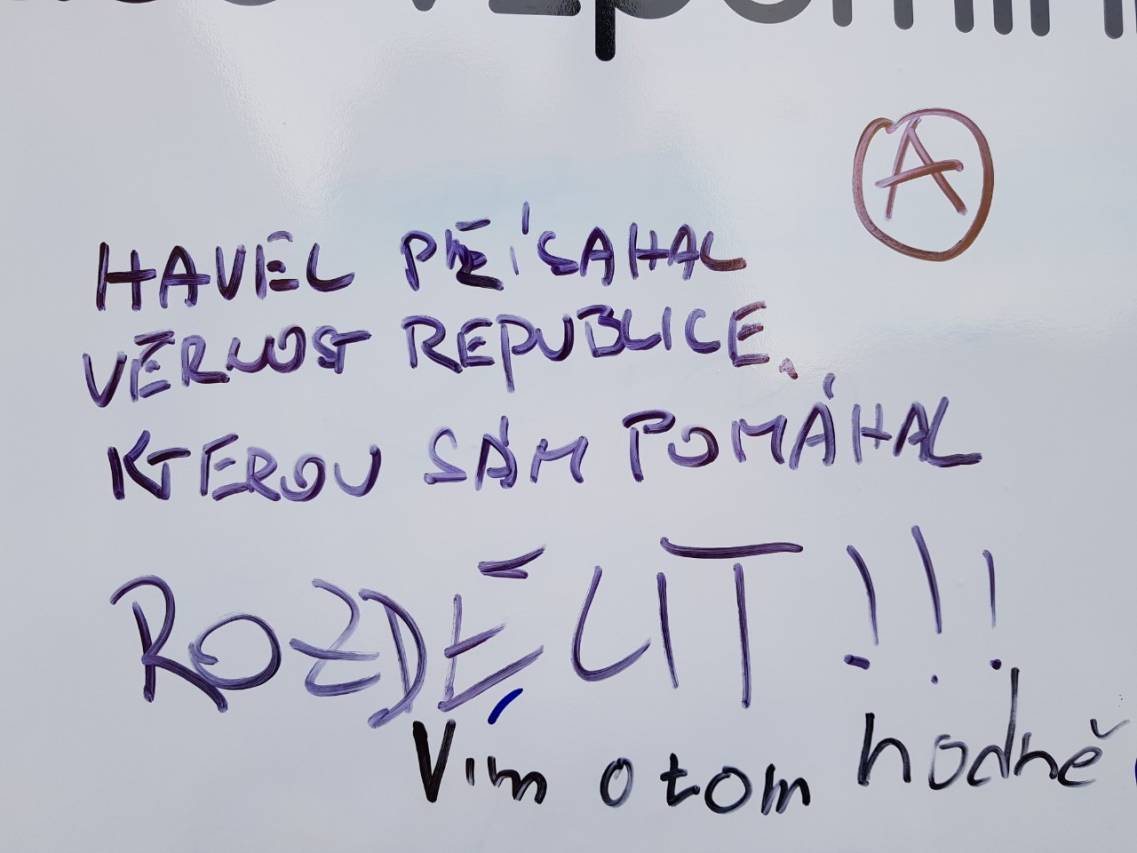 A
HAVEL PŘÍSAHAL
VĚRNOST REPUBLICE,
KTEROU SÁM POMÁHAL
ROZDĚLIT!!!
Vím o tom hodně